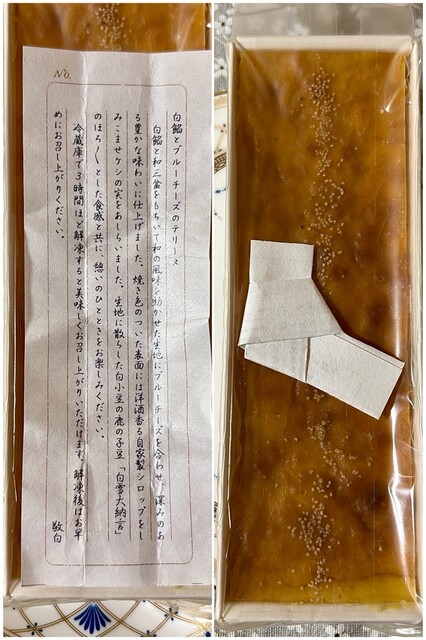 No.
白餡とブルーチーズのテリーヌ
白餡と和三盆をもちいて和の風味を効かせた生地にブルーチーズを合わせ、深みのあ
る豊かな味わいに仕上げました。焼き色のついた表面には洋酒香る自家製シロップをし
みこませケシの実をあしらいました。生地に散らした白小豆の鹿の子豆「白雪大納言」
のほろ〱とした食感と共に、憩いのひとときをお楽しみください。
冷蔵庫で3時間ほど解凍すると美味しくお召し上がりいただけます。解凍後はお早
めにお召し上がりください。
敬白